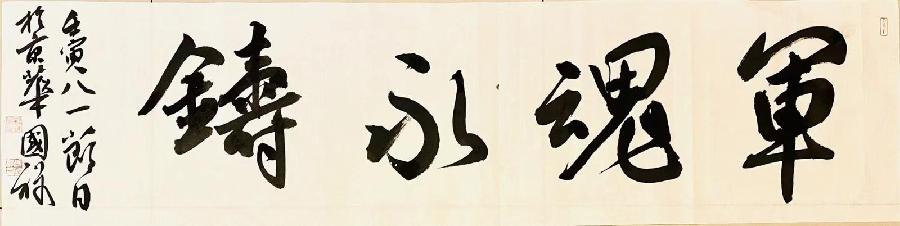 軍魂永鑄
壬寅八一節日
於京華國祥